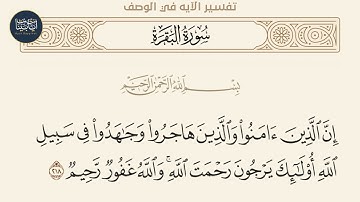 تفسير الآيه في الوصف
سُورَةُ البَقَرَةِ
بِسْمِ اللَّهِ الرَّحْمَٰنِ الرَّحِيمِ
إِنَّ ٱلَّذِينَ ءَامَنُوا۟ وَٱلَّذِينَ هَاجَرُوا۟ وَجَٰهَدُوا۟ فِى سَبِيلِ
ٱللَّهِ أُو۟لَٰٓئِكَ يَرْجُونَ رَحْمَتَ ٱللَّهِ ۚ وَٱللَّهُ غَفُورٌ رَّحِيمٌ ٢١٨